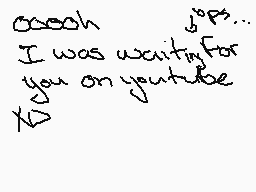 oooooh
oops...
I was waiting For
you on youtube
XD